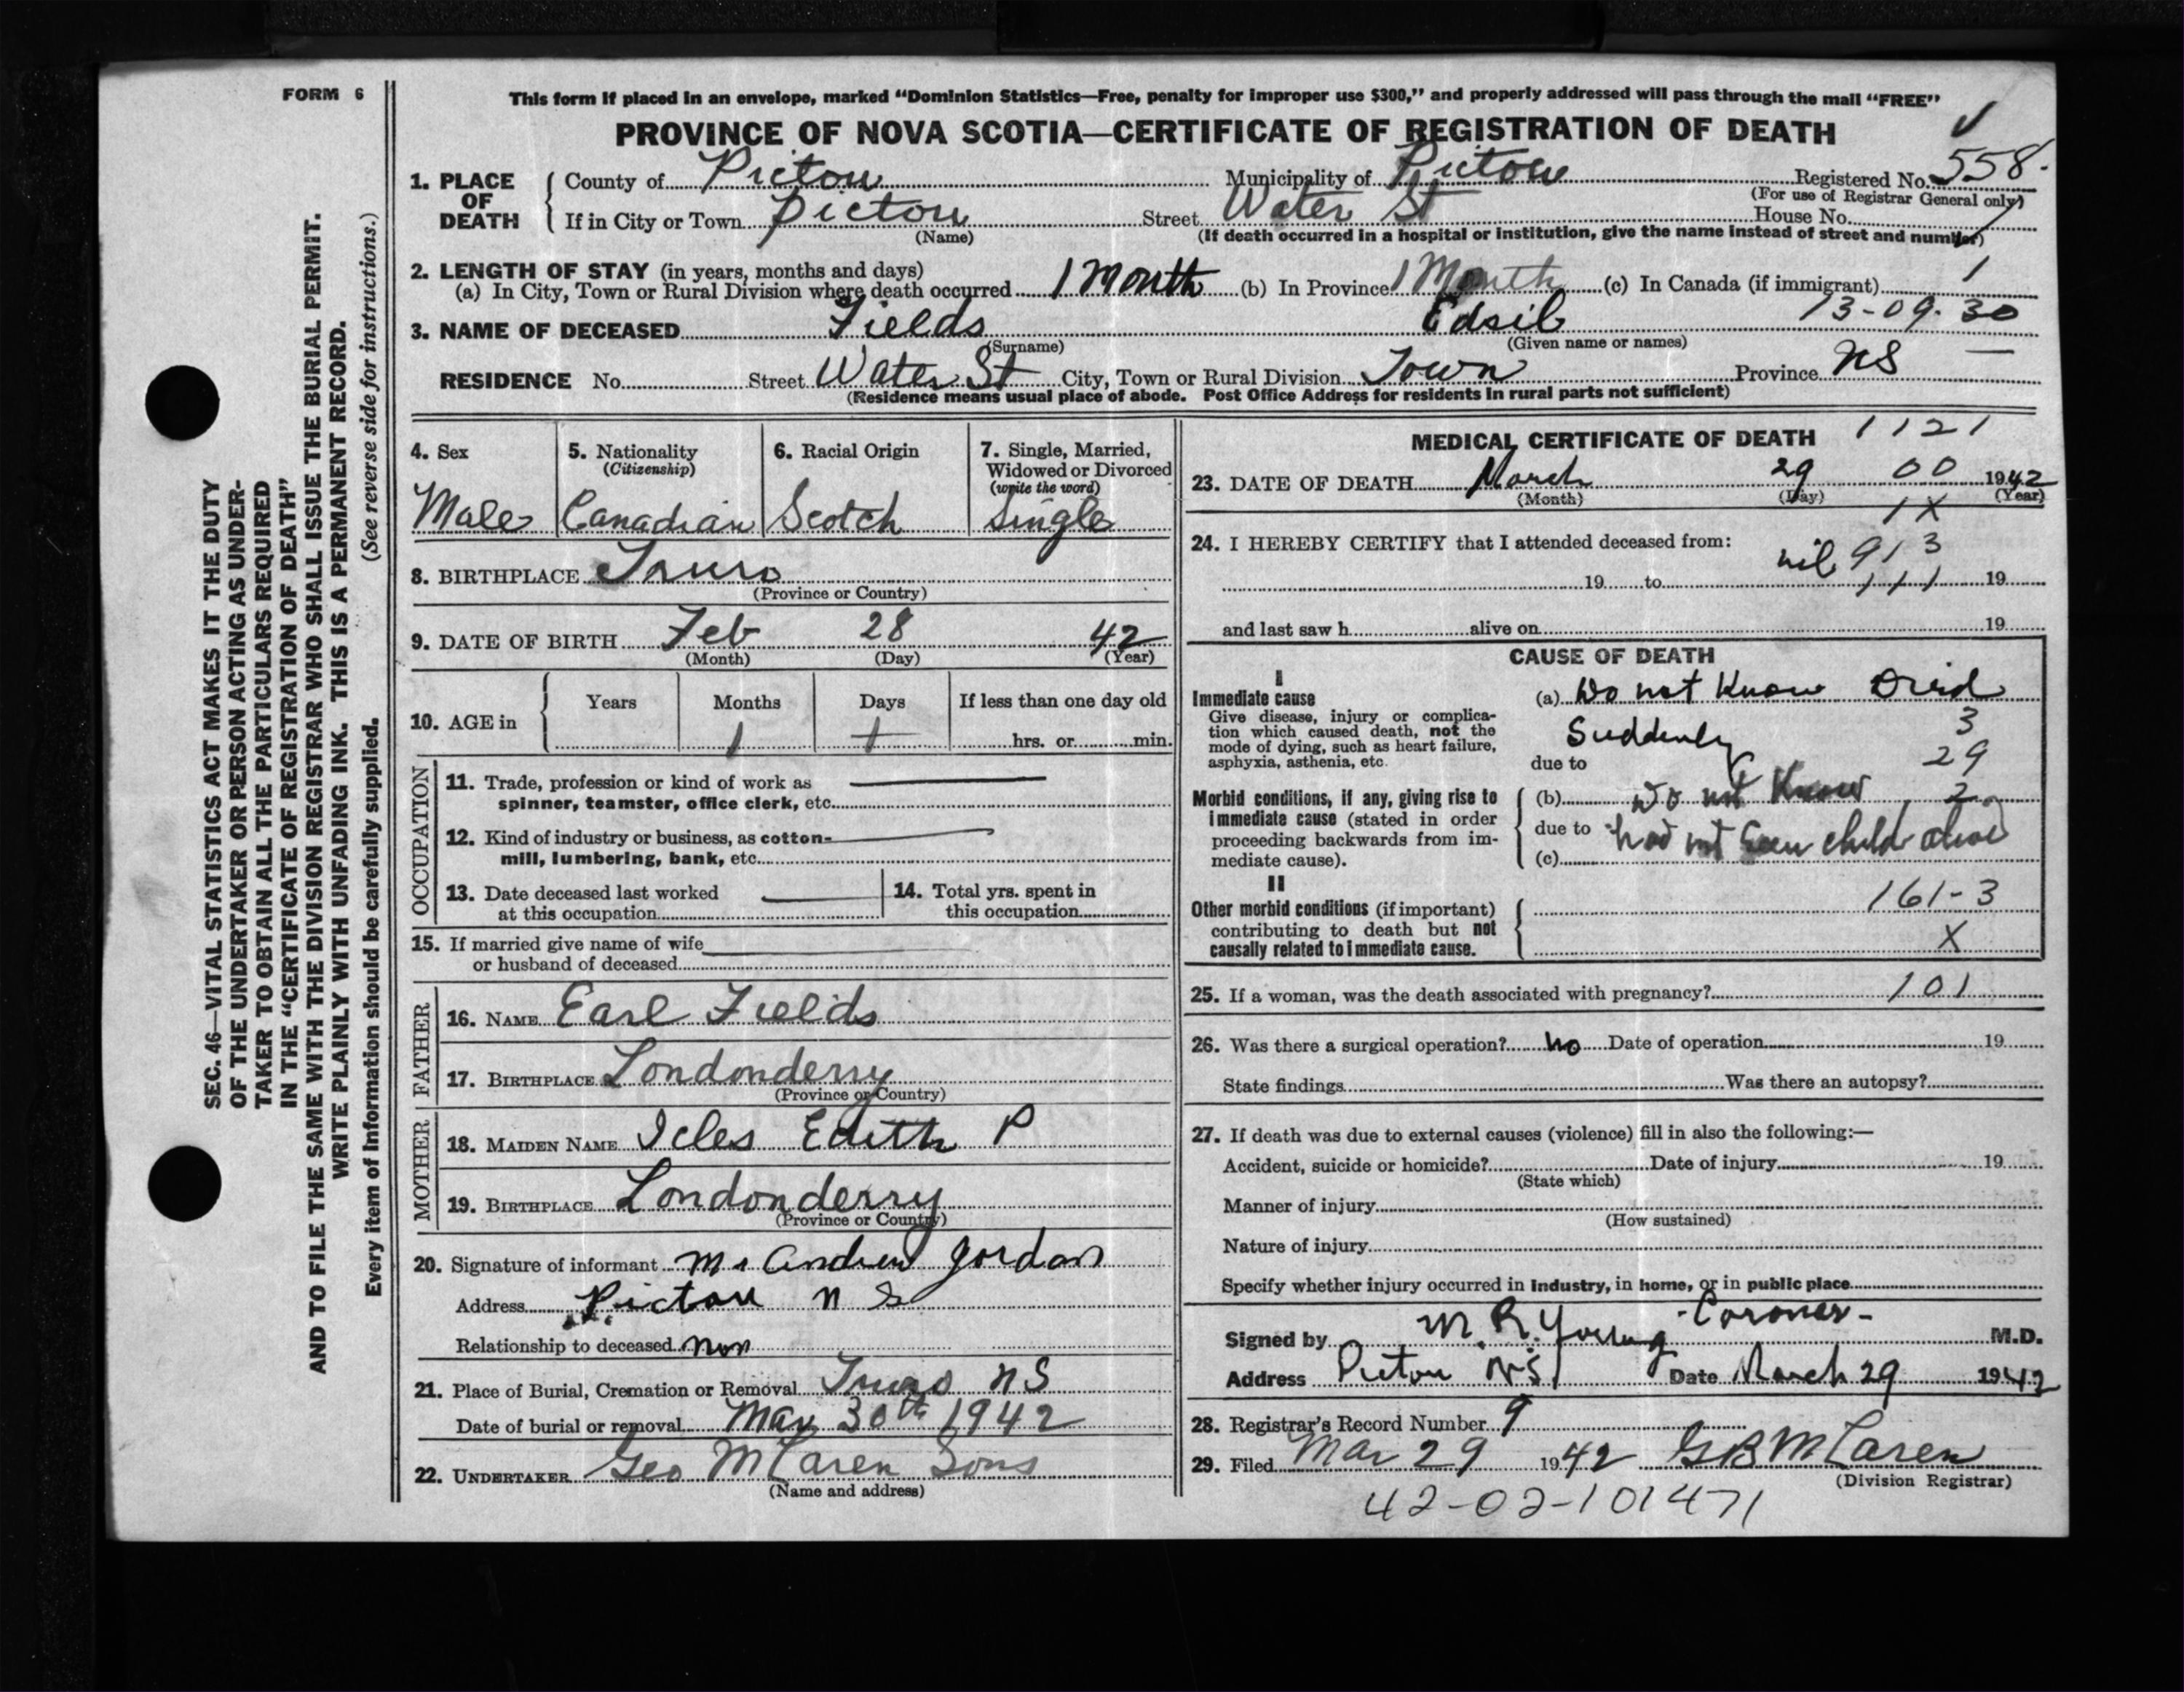 FORM 6
This form if placed in an envelope, marked “Dominion Statistics—Free, penalty for improper use $300,” and properly addressed will pass through the mail “FREE”
PROVINCE OF NOVA SCOTIA—CERTIFICATE OF REGISTRATION OF DEATH
1. PLACE OF DEATH County of Pictou Municipality of Pictou Registered No. 558.
(For use of Registrar General only)
If in City or Town Pictou Street Water St House No.
(Name) (If death occurred in a hospital or institution, give the name instead of street and number)
2. LENGTH OF STAY (in years, months and days)
(a) In City, Town or Rural Division where death occurred 1 Month (b) In Province 1 Month (c) In Canada (if immigrant) 1
3. NAME OF DECEASED Fields Edsil 13-09-30
(Surname) (Given name or names)
RESIDENCE No. Street Water St City, Town or Rural Division Town Province NS —
(Residence means usual place of abode. Post Office Address for residents in rural parts not sufficient)
4. Sex Male
5. Nationality (Citizenship) Canadian
6. Racial Origin Scotch
7. Single, Married, Widowed or Divorced (write the word) Single
8. BIRTHPLACE Truro
(Province or Country)
9. DATE OF BIRTH Feb 28 42
(Month) (Day) (Year)
10. AGE in Years Months Days If less than one day old
1 1 hrs. or min.
OCCUPATION
11. Trade, profession or kind of work as
spinner, teamster, office clerk, etc.
12. Kind of industry or business, as cotton-
mill, lumbering, bank, etc.
13. Date deceased last worked
at this occupation
14. Total yrs. spent in
this occupation
15. If married give name of wife
or husband of deceased
FATHER
16. NAME Earl Fields
17. BIRTHPLACE Londonderry
(Province or Country)
MOTHER
18. MAIDEN NAME Icles Edith P
19. BIRTHPLACE Londonderry
(Province or Country)
20. Signature of informant Mr Andrew Jordan
Address Pictou N S
Relationship to deceased Non
21. Place of Burial, Cremation or Removal Truro NS
Date of burial or removal Mar 30th 1942
22. UNDERTAKER Geo McLaren Sons
(Name and address)
MEDICAL CERTIFICATE OF DEATH 1121
23. DATE OF DEATH March 29 00 1942
(Month) (Day) (Year)
1X
24. I HEREBY CERTIFY that I attended deceased from:
nil 913
19 to 111 19
and last saw h alive on 19
CAUSE OF DEATH
I
Immediate cause
Give disease, injury or complica-
tion which caused death, not the
mode of dying, such as heart failure,
asphyxia, asthenia, etc.
(a) Do not Know Died
Suddenly 3
due to 29
Morbid conditions, if any, giving rise to
immediate cause (stated in order
proceeding backwards from im-
mediate cause).
(b) Do not Know 2
due to had not seen child alive
(c)
II
Other morbid conditions (if important)
contributing to death but not
causally related to immediate cause.
161-3
X
25. If a woman, was the death associated with pregnancy? 101
26. Was there a surgical operation? No Date of operation 19
State findings Was there an autopsy?
27. If death was due to external causes (violence) fill in also the following:—
Accident, suicide or homicide? Date of injury 19
(State which)
Manner of injury
(How sustained)
Nature of injury
Specify whether injury occurred in Industry, in home, or in public place
Signed by M. R. Young -Coroner- M.D.
Address Pictou N.S. Date March 29 1942
28. Registrar's Record Number 9
29. Filed Mar 29 1942 G B McLaren
(Division Registrar)
42-02-101471
SEC. 46—VITAL STATISTICS ACT MAKES IT THE DUTY
OF THE UNDERTAKER OR PERSON ACTING AS UNDER-
TAKER TO OBTAIN ALL THE PARTICULARS REQUIRED
IN THE “CERTIFICATE OF REGISTRATION OF DEATH”
AND TO FILE THE SAME WITH THE DIVISION REGISTRAR WHO SHALL ISSUE THE BURIAL PERMIT.
WRITE PLAINLY WITH UNFADING INK. THIS IS A PERMANENT RECORD.
Every item of information should be carefully supplied. (See reverse side for instructions.)